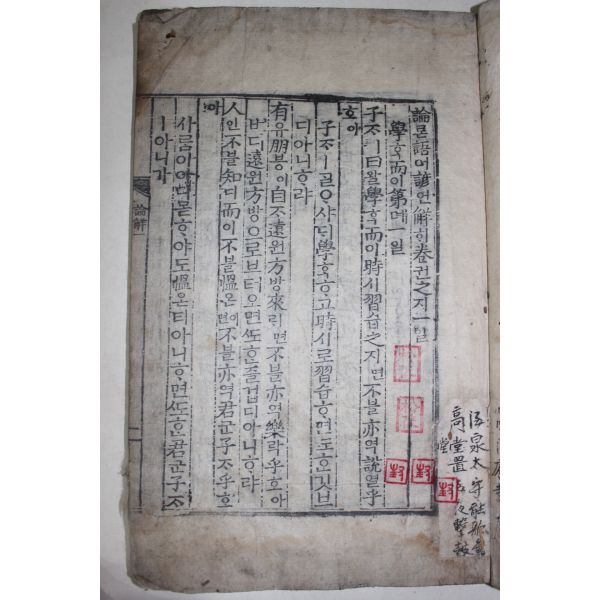 論론語어諺언解ᄒᆡ卷권之지一일
學ᄒᆞᆨ而이第뎨一일
子ᄌᆞㅣ曰왈學ᄒᆞᆨ而이時시習습之지면不블亦역說열乎
호아
子ᄌᆞㅣᄀᆞᆯᄋᆞ샤ᄃᆡ學ᄒᆞᆨᄒᆞ고時시로習습ᄒᆞ면ᄯᅩᄒᆞᆫ깃브
디아니ᄒᆞ랴
有유朋붕이自ᄌᆞ遠원方방來ᄅᆡ면不블亦역樂락乎호아
버디遠원方방으로브터오면ᄯᅩᄒᆞᆫ즐겁디아니ᄒᆞ랴
人인不블知디而이不블慍온이면不블亦역君군子ᄌᆞ乎호
아
사ᄅᆞᆷ이아디몯ᄒᆞ야도慍온티아니ᄒᆞ면ᄯᅩᄒᆞᆫ君군子ᄌᆞ
ㅣ아니가
論解
一